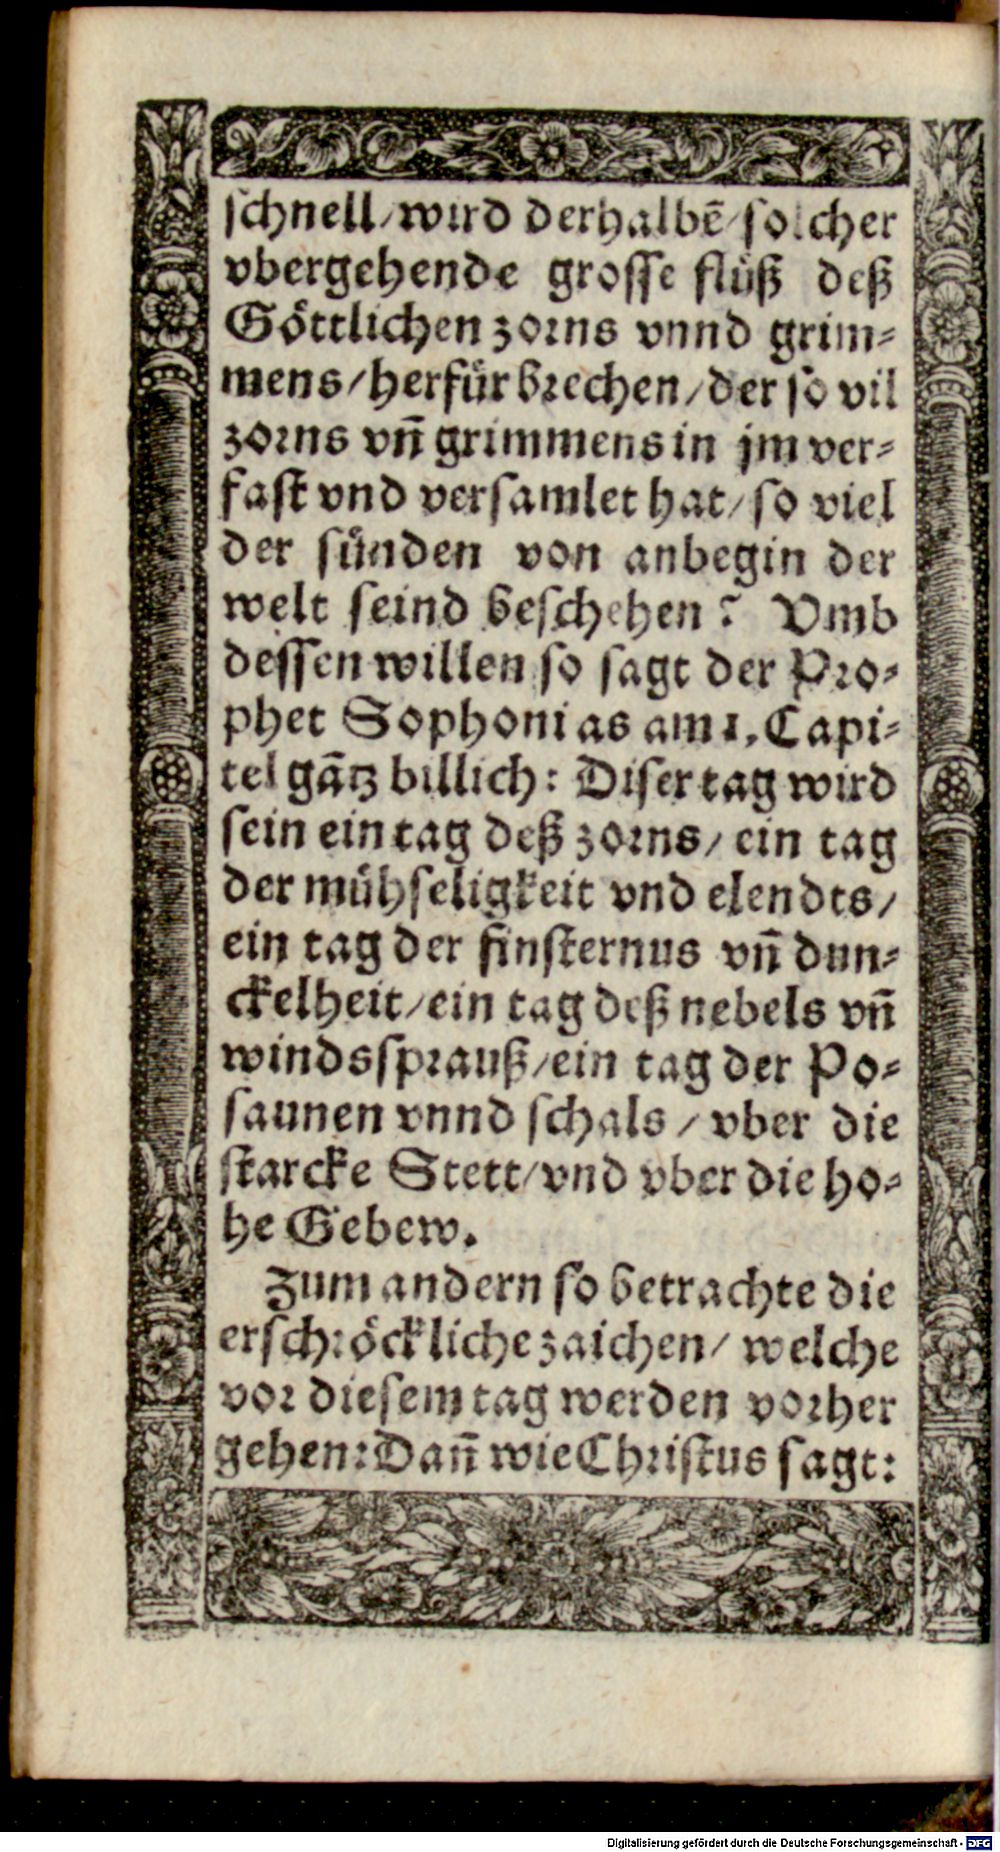 schnell/wird derhalbē/solcher
vbergehende grosse flüß deß
Göttlichen zorns vnnd grim⸗
mens/herfür brechen/der so vil
zorns vñ grimmens in jm ver⸗
fast vnd versamlet hat/so viel
der sünden von anbegin der
welt seind beschehen? Vmb
dessen willen so sagt der Pro⸗
phet Sophonias am 1. Capi⸗
tel gātz billich: Diser tag wird
sein ein tag deß zorns/ein tag
der mühseligkeit vnd elendts/
ein tag der finsternus vñ dun⸗
ckelheit/ein tag deß nebels vñ
windssprauß/ein tag der Po⸗
saunen vnnd schals/vber die
starcke Stett/vnd vber die ho⸗
he Gebew.
Zum andern so betrachte die
erschröckliche zaichen/welche
vor diesem tag werden vorher
gehen: Dañ wie Christus sagt:
Digitalisierung gefördert durch die Deutsche Forschungsgemeinschaft - DFG